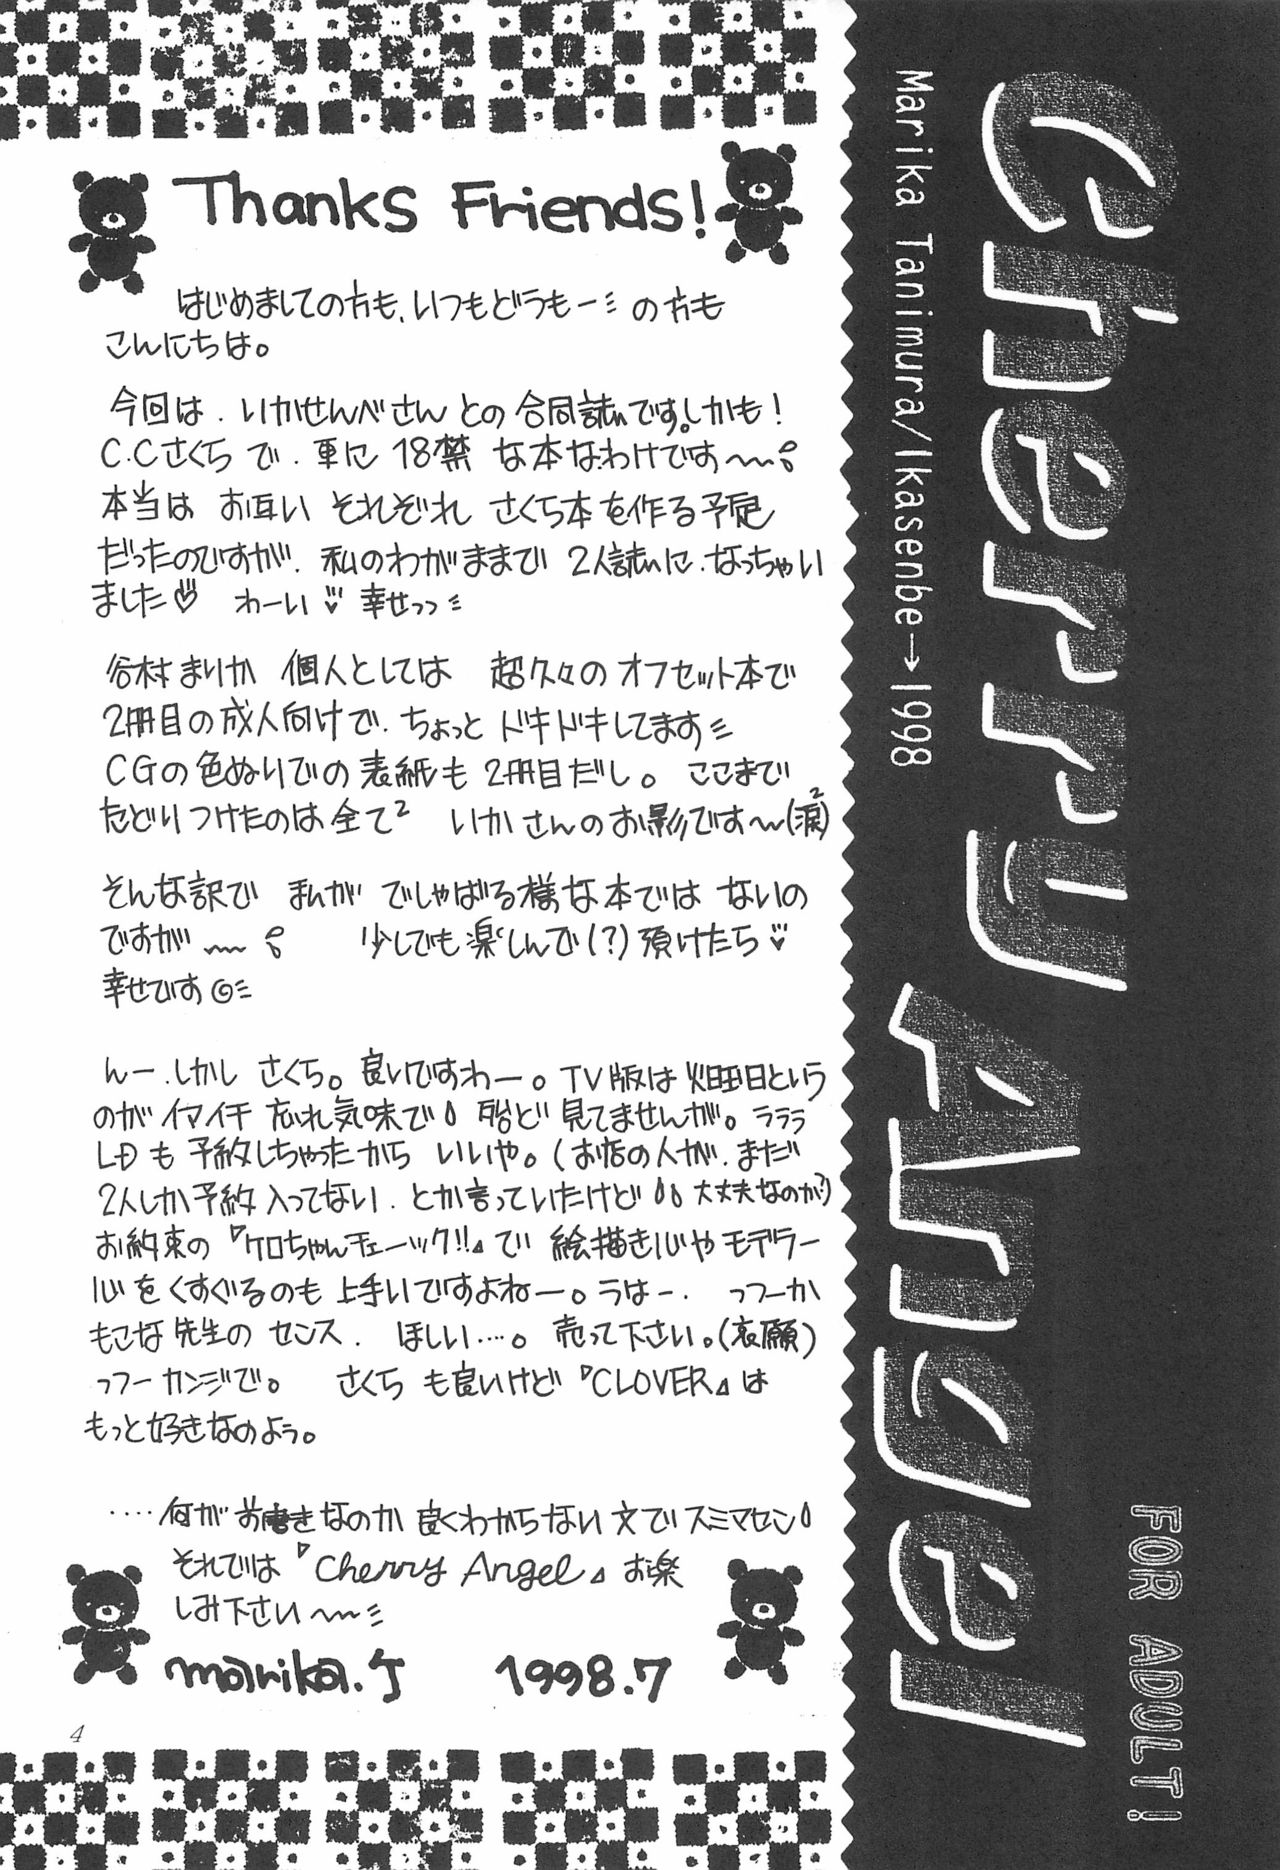 Thanks Friends!
はじめましての方も、いつもどうもーの方も
こんにちは。
今回は、いかせんべさんとの合同誌です。しかも!
C.Cさくらで、更に18禁な本なわけです〜
本当はお互いそれぞれさくら本を作る予定
だったのですが、私のわがままで2人誌に、なっちゃい
ました♡ わーい♡ 幸せっっ
谷村まりか個人としては超久々のオフセット本で
2冊目の成人向けで、ちょっとドキドキしてます
CGの色ぬりでの表紙も2冊目だし。ここまで
たどりつけたのは全て² いかさんのお影です〜(涙)²
そんな訳でまんがでしゃばる様な本ではないの
ですが〜 少しでも楽しんで(?)頂けたら♡
幸せです
んー、しかしさくら。良いですわー。TV版は火曜日という
のがイマイチ忘れ気味で殆ど見てませんが。ラララ
LDも予約しちゃったからいいや。(お店の人が、まだ
2人しか予約入ってない、とか言っていたけど 大丈夫なのか?)
お約束の『ケロちゃんチェーック!!』で絵描き心やモデラー
心をくすぐるのも上手いですよねー。うはー、っつーか
もこな先生のセンス、ほしい…。売って下さい。(哀願)
っつーカンジで。 さくらも良いけど『CLOVER』は
もっと好きなのよう。
‥‥何がお書きなのか良くわからない文でスミマセン
それでは『Cherry Angel』お楽
しみ下さい〜
marika.T 1998.7
4
Cherry Angel
Marika Tanimura/Ikasenbe→1998
FOR ADULT!